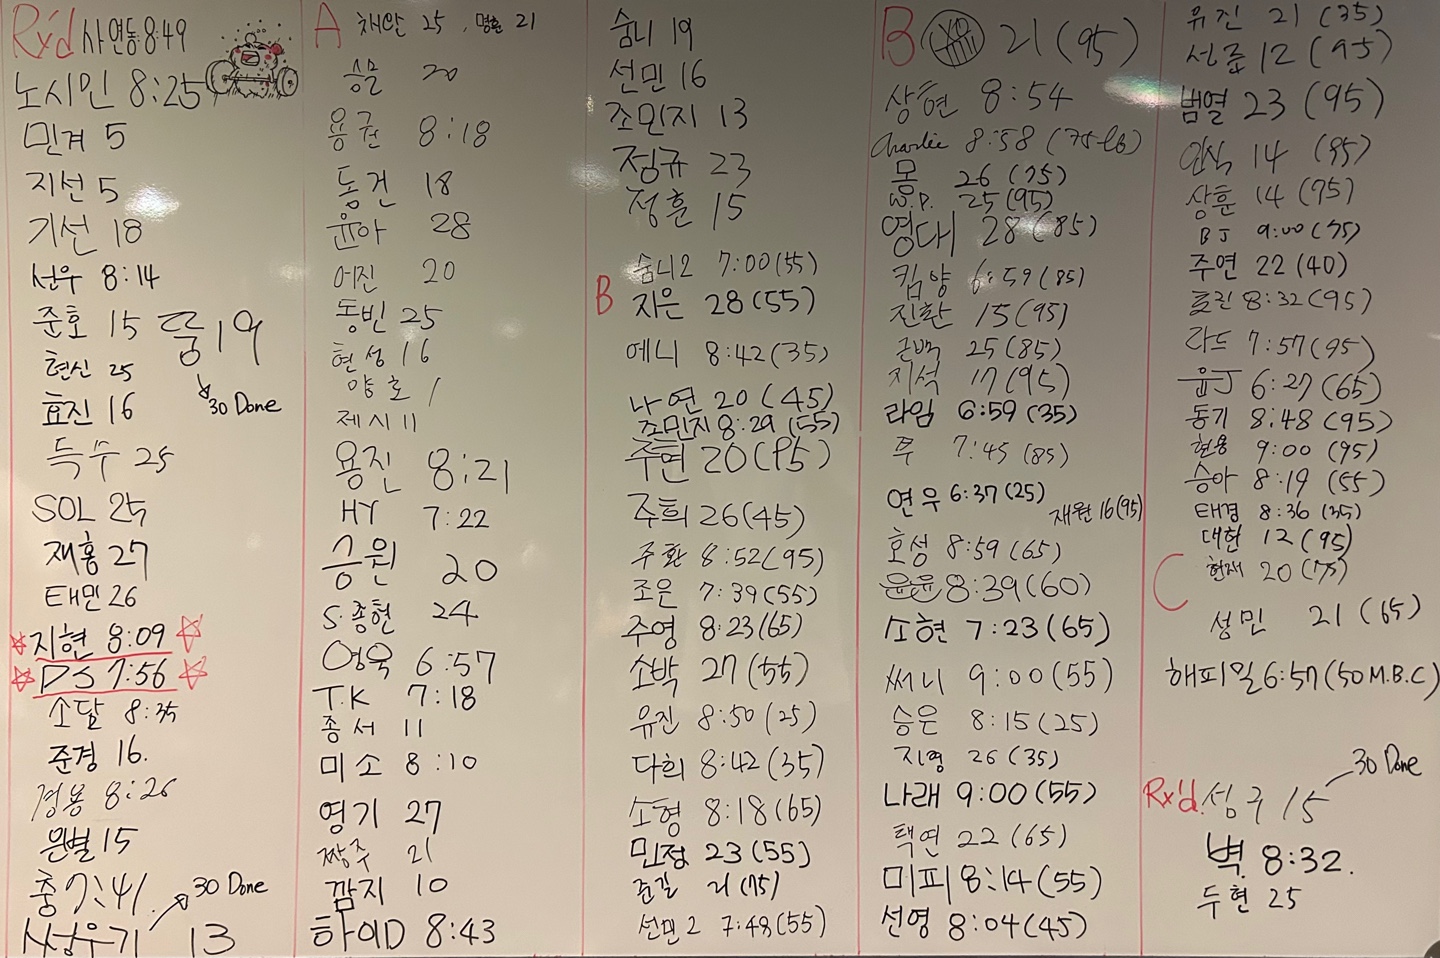 Rx'd 사연동 8:49
노시민 8:25
민겨 5
지선 5
기선 18
선우 8:14
준호 15
뚱 19
30 Done
현신 25
효진 16
득수 25
SOL 25
재홍 27
태민 26
지현 8:09
DS 7:56
소달 8:35
준경 16.
경용 8:26
완별 15
충 7:41
30 Done
사성우기 13
A 채안 25, 명훈 21
승물 20
용권 8:18
동건 18
윤아 28
어진 20
동빈 25
현성 16
양호 1
제시 11
용진 8:21
HY 7:22
승원 20
S.종현 24
영욱 6:57
T.K 7:18
종서 11
미소 8:10
영기 27
짱주 21
깜지 10
하이D 8:43
숨니 19
선민 16
조민지 13
정규 23
정훈 15
숨니2 7:00 (55)
B 지은 28 (55)
예니 8:42 (35)
나연 20 (45)
조민지 8:29 (55)
주연 20 (95)
주희 26 (45)
주환 8:52 (95)
조은 7:39 (55)
주영 8:23 (65)
소박 27 (55)
유진 8:50 (25)
다희 8:42 (35)
소형 8:18 (65)
민정 23 (55)
준길 21 (75)
선민2 7:48 (55)
B 21 (95)
상현 8:54
Charlie 8:58 (75lb)
몽 26 (75)
W.P. 25 (95)
영대 28 (85)
킴양 6:59 (85)
진환 15 (95)
근백 25 (85)
지석 17 (95)
라임 6:59 (35)
투 7:45 (85)
연우 6:37 (25)
재원 16 (95)
호성 8:59 (65)
윤윤 8:39 (60)
소현 7:23 (65)
써니 9:00 (55)
승은 8:15 (25)
지영 26 (35)
나래 9:00 (55)
택연 22 (65)
미피 8:14 (55)
선영 8:04 (45)
뮤진 21 (35)
서준 12 (95)
범열 23 (95)
인식 14 (95)
상훈 14 (95)
BJ 9:00 (75)
주연 22 (40)
효린 8:32 (95)
라드 7:57 (95)
윤J 6:27 (65)
동기 8:48 (95)
현용 9:00 (95)
승아 8:19 (55)
태경 8:36 (35)
대헌 12 (95)
현재 20 (75)
C
성민 21 (65)
해피밀 6:57 (50 M.B.C)
30 Done
Rx'd. 성구 15
벽 8:32.
두현 25